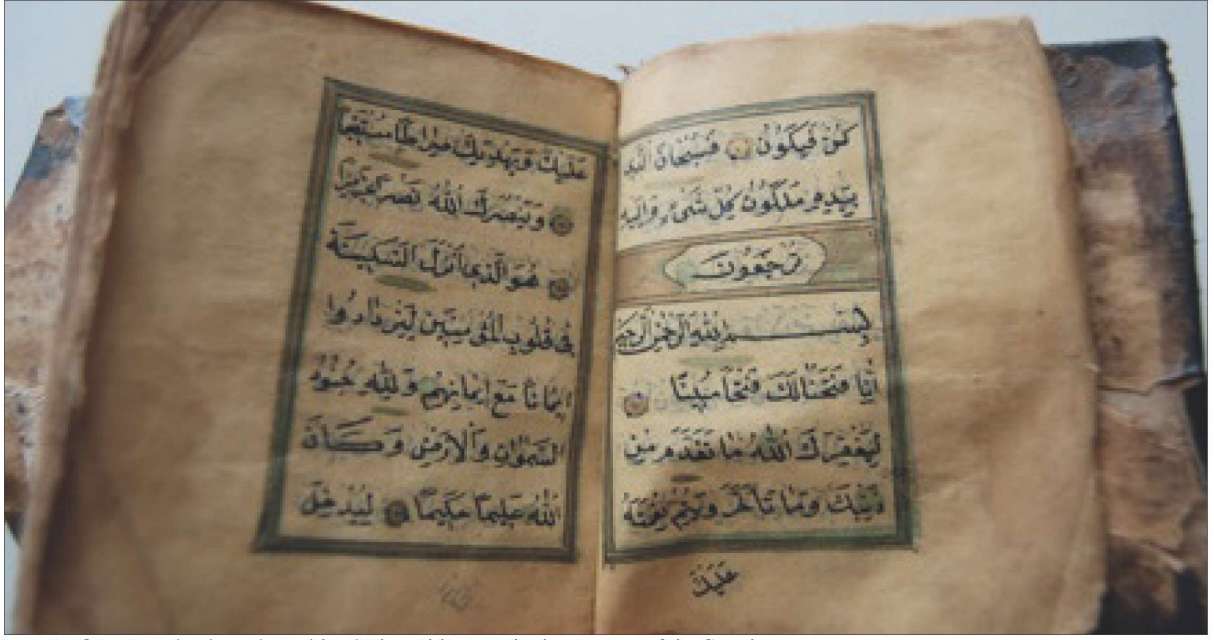 كن فيكون فسبحان الذي
بيده ملكوت كل شيء واليه
ترجعون
بسم الله الرحمن الرحيم
انا فتحنا لك فتحا مبينا
ليغفر لك الله ما تقدم من
ذنبك وما تأخر ويتم نعمته
عليك
عليك ويهديك صراطا مستقيما
وينصرك الله نصرا عزيزا
هو الذي أنزل السكينة
في قلوب المؤمنين ليزدادوا
ايمانا مع ايمانهم ولله جنود
السموات والارض وكان
الله عليما حكيما ليدخل